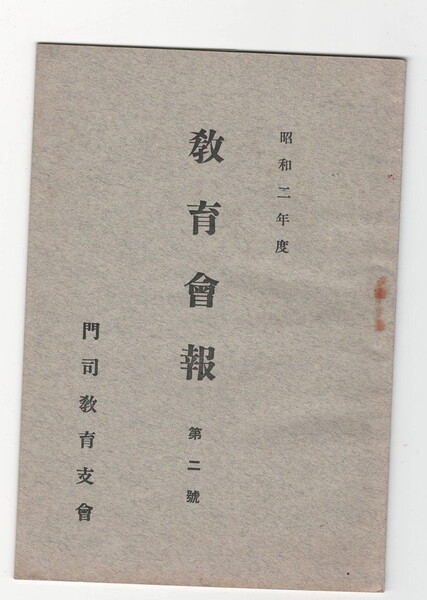 昭和二年度
教育會報 第二號
門司教育支會